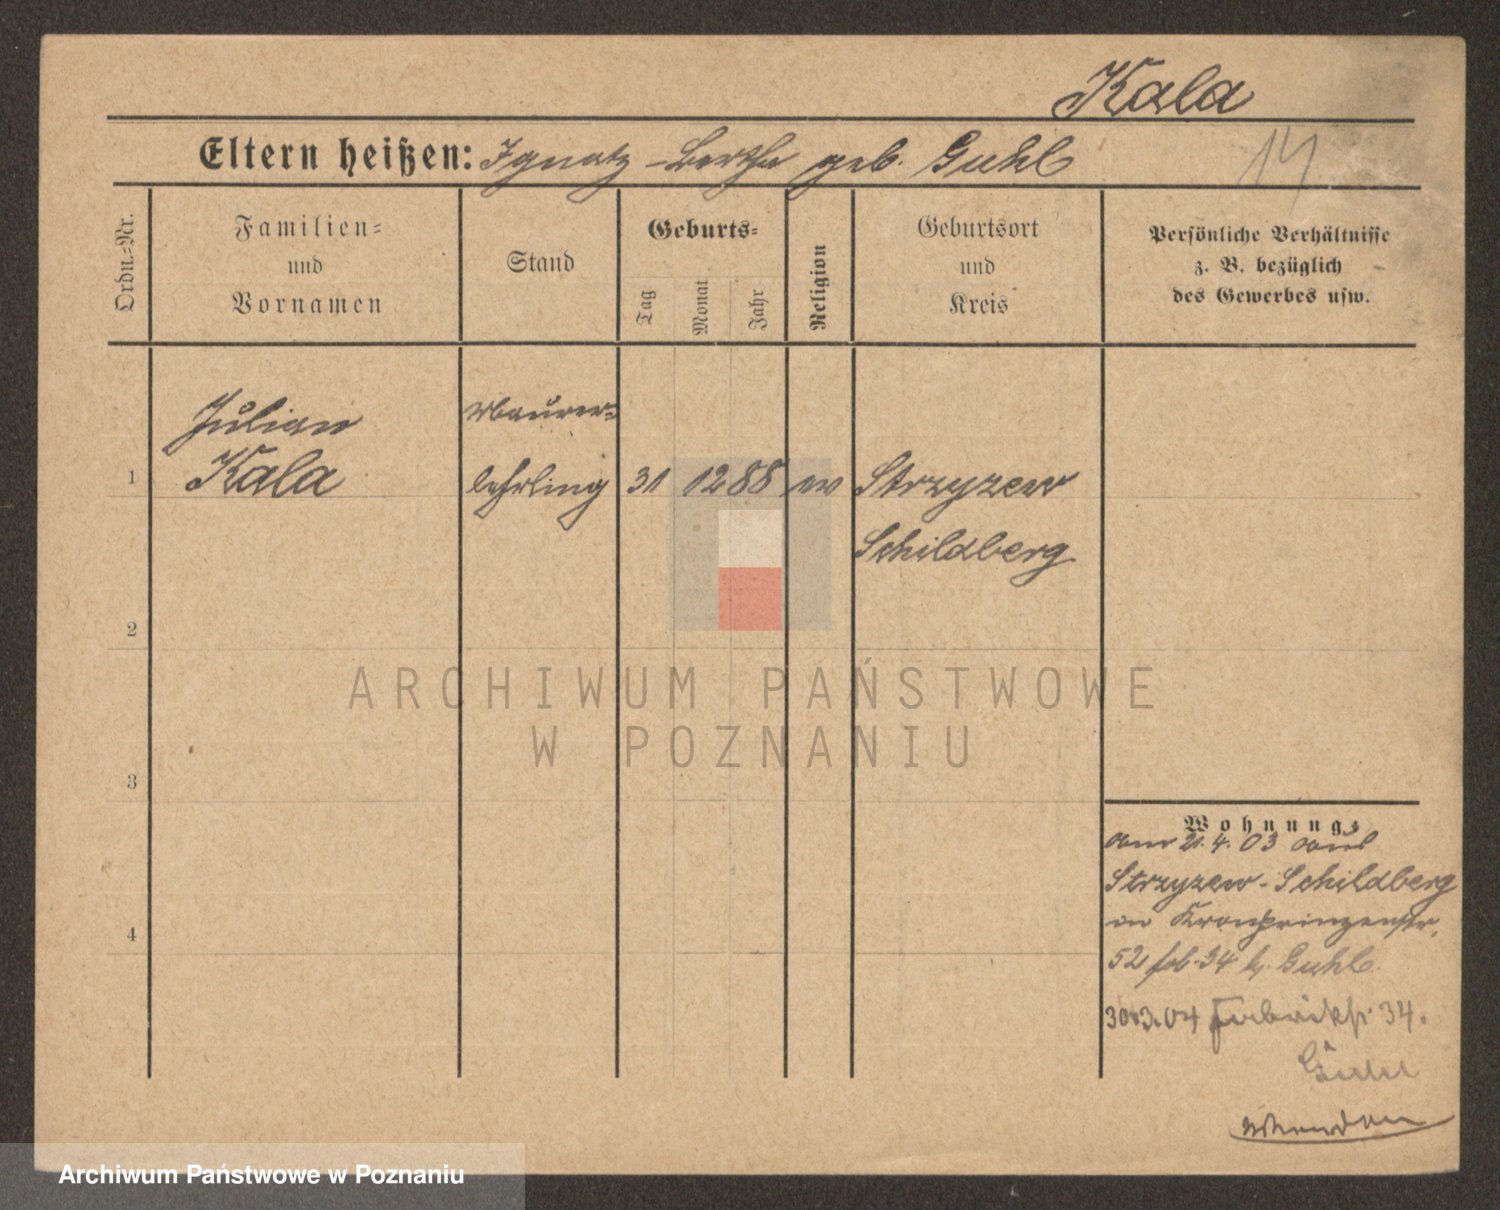 Kala
Eltern heißen: Ignatz - Bertha geb. Guhl
14
Ordn.-Nr.
Familien-
und
Vornamen
Stand
Geburts-
Tag
Monat
Jahr
Religion
Geburtsort
und
Kreis
Persönliche Verhältnisse
z. B. bezüglich
des Gewerbes usw.
Julian
Kala
Maurer-
lehrling
1
31 12 88 ev Strzyzew
Schildberg
2
3
4
Wohnung:
am 21.4.03 aus
Strzyzew-Schildberg
in Kronprinzenstr.
52 fol. 34 b. Guhl.
30.3.04 Fabrikstr 34.
Guhl
Wenden
ARCHIWUM PAŃSTWOWE
W POZNANIU
Archiwum Państwowe w Poznaniu